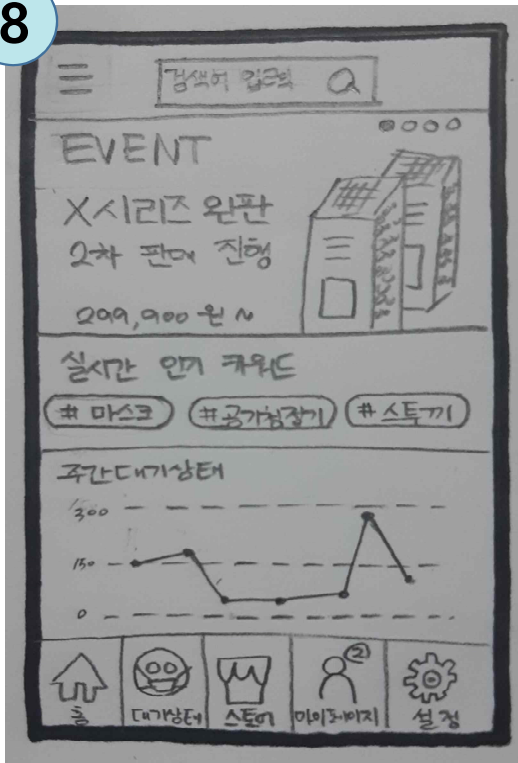 8
검색어 입력
EVENT
X시리즈 완판
2차 판매 진행
299,900원 ~
실시간 인기 키워드
# 마스크 # 공기청정기 # 스투끼
주간대기상태
300
150
0
2
홈 대기상태 스토어 마이페이지 설정